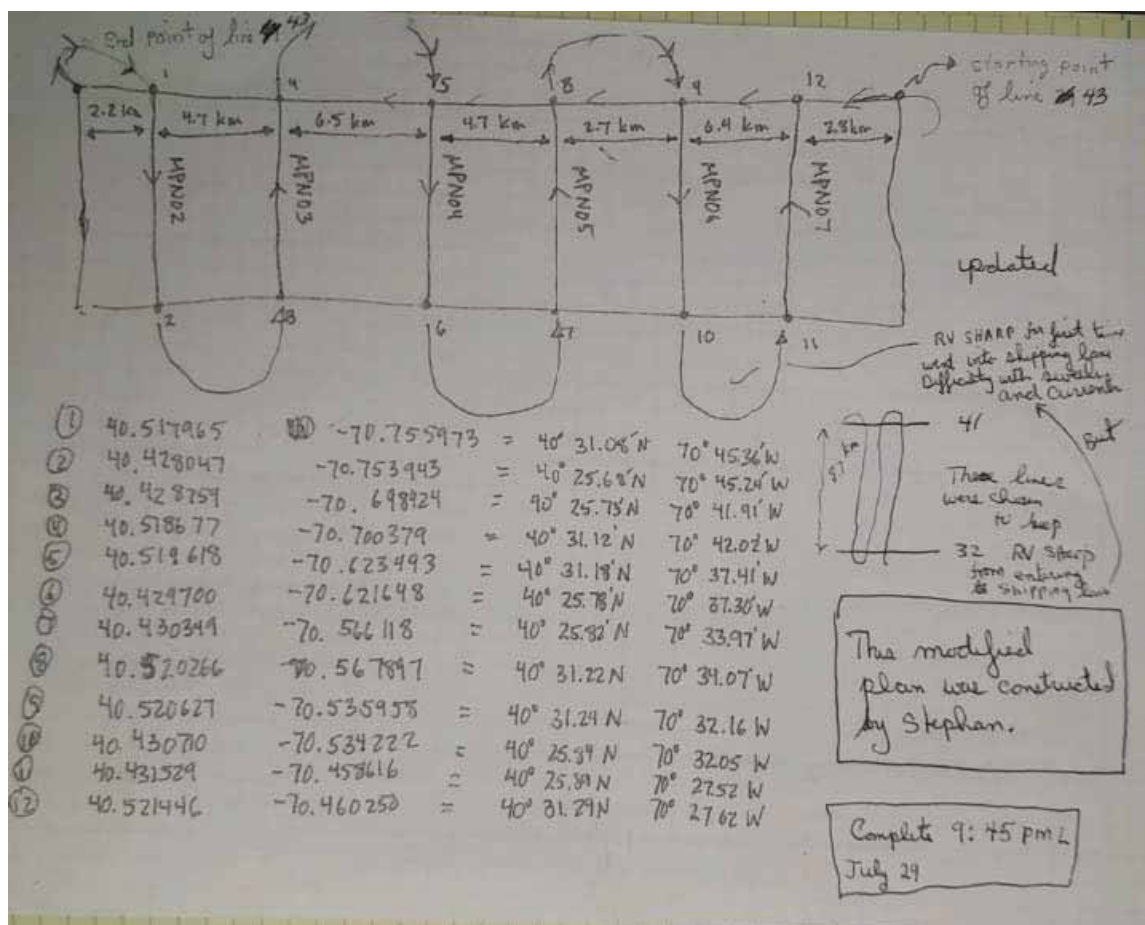 End point of line 43
starting point
of line 43
1 4 5 8 9 12
2.2 km 4.7 km 6.5 km 4.7 km 2.7 km 6.4 km 2.8km
MPN02 MPN03 MPN04 MPN05 MPN06 MPN07
2 3 6 7 10 11
updated
RV SHARP for first time
went into shipping lane
Difficulty with
and Currents
But
41
8.7 km
These lines
were chosen
to keep
32 RV Sharp
from entering
shipping lane
① 40.517965 -70.755973 = 40° 31.08'N 70° 45.36'W
② 40.428047 -70.753943 = 40° 25.68'N 70° 45.24'W
③ 40.428759 -70.698924 = 40° 25.73'N 70° 41.91'W
④ 40.518677 -70.700379 = 40° 31.12'N 70° 42.02'W
⑤ 40.519618 -70.623493 = 40° 31.18'N 70° 37.41'W
⑥ 40.429700 -70.621648 = 40° 25.78'N 70° 37.30'W
⑦ 40.430349 -70.566118 = 40° 25.82'N 70° 33.97'W
⑧ 40.520266 -70.567897 = 40° 31.22N 70° 34.07'W
⑨ 40.520627 -70.535958 = 40° 31.24 N 70° 32.16 W
⑩ 40.430710 -70.534222 = 40° 25.84 N 70° 32.05 W
⑪ 40.431529 -70.458616 = 40° 25.89 N 70° 27.52 W
⑫ 40.521446 -70.460250 = 40° 31.29N 70° 27.62 W
This modified
plan was constructed
by Stephan.
Complete 9:45 pm L
July 29